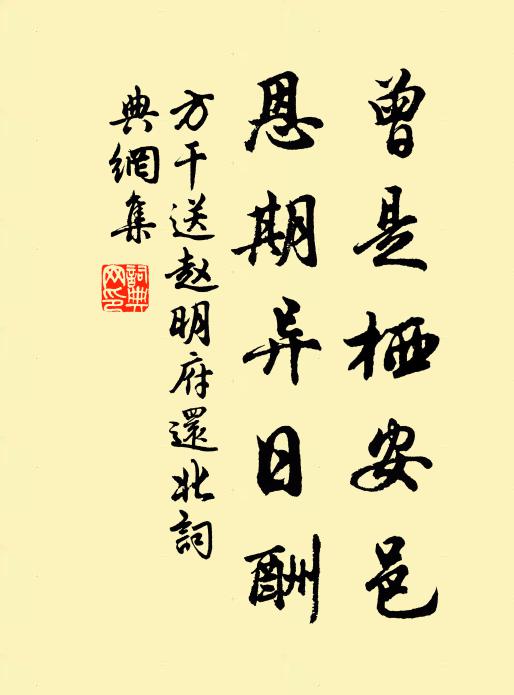 曾是栖安邑
恩期异日酬
方干送赵明府還北詞
典網集
詞典网印